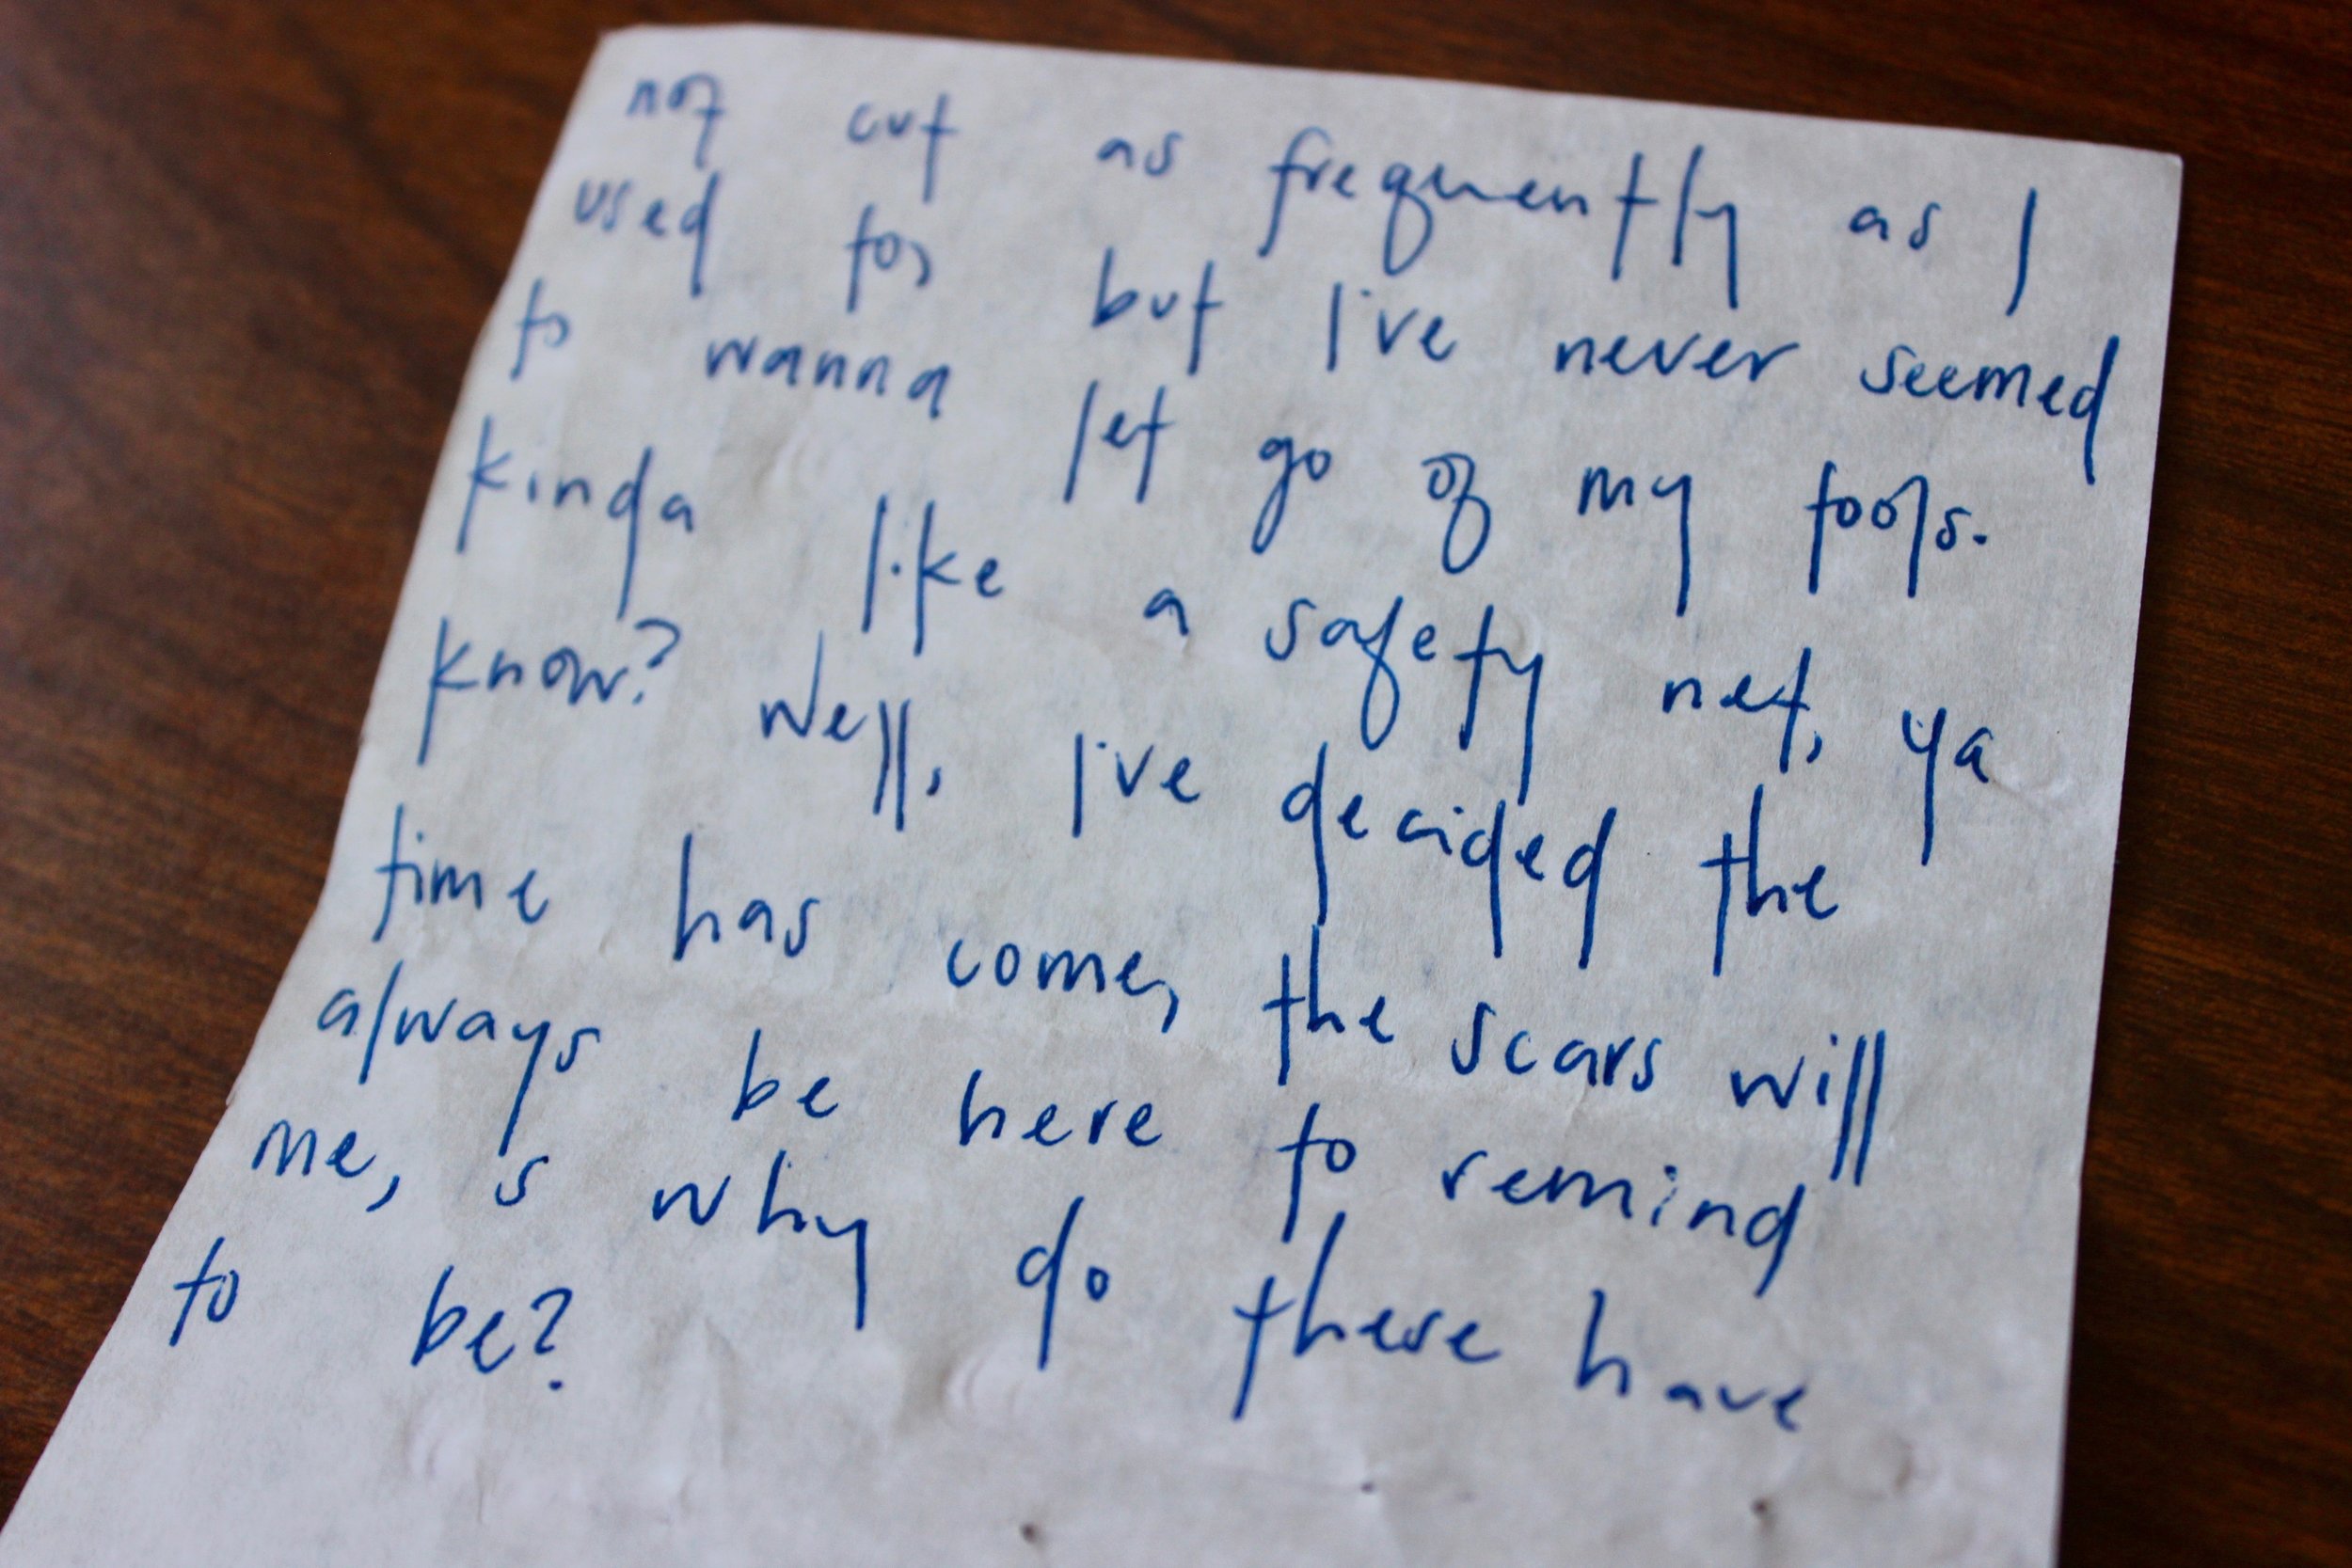 not cut as frequently as I
used to, but I've never seemed
to wanna let go of my tools.
kinda like a safety net, ya
know? Well, I've decided the
time has come, the scars will
always be here to remind
me, s why do these have
to be?